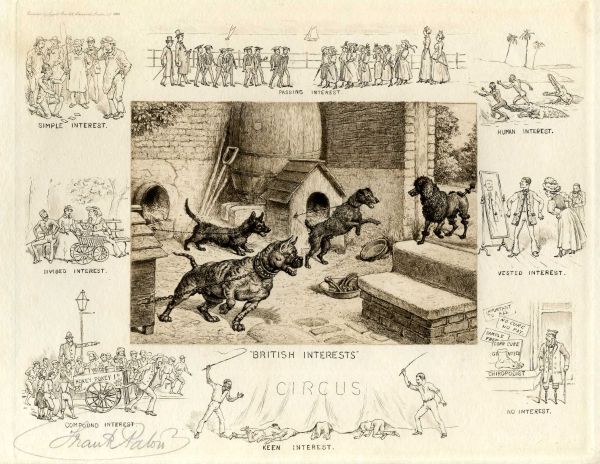 SIMPLE INTEREST.
PASSING INTEREST
HUMAN INTEREST.
DIVIDED INTEREST.
VESTED INTEREST.
"BRITISH INTERESTS"
CIRCUS
HOKEY POKEY
COMPOUND INTEREST
KEEN INTEREST.
NO CURE
NO PAY
CORN CURE
CHIROPODIST
NO INTEREST.
Frank Paton